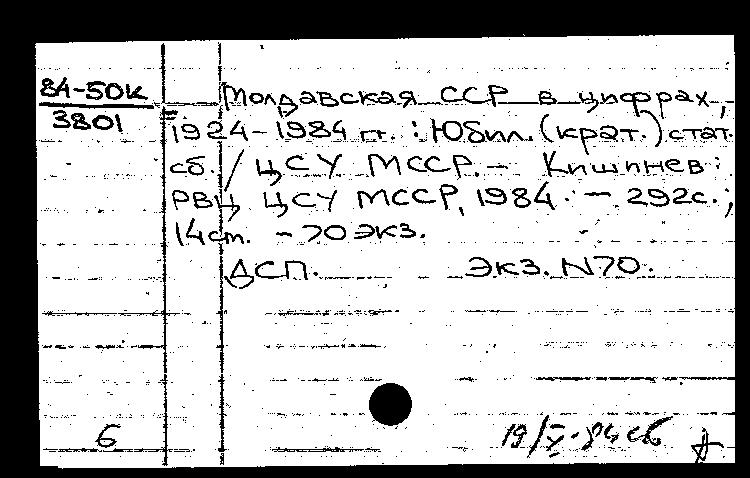 84-50к
3801
Молдавская ССР в цифрах,
= 1924-1984 гг. : Юбил. (крат.) стат.
сб. / ЦСУ МССР. - Кишинев :
РВЦ ЦСУ МССР, 1984. - 292с.;
14см. - 70 экз.
ДСП. Экз. N70.
6
19/X-84 сб